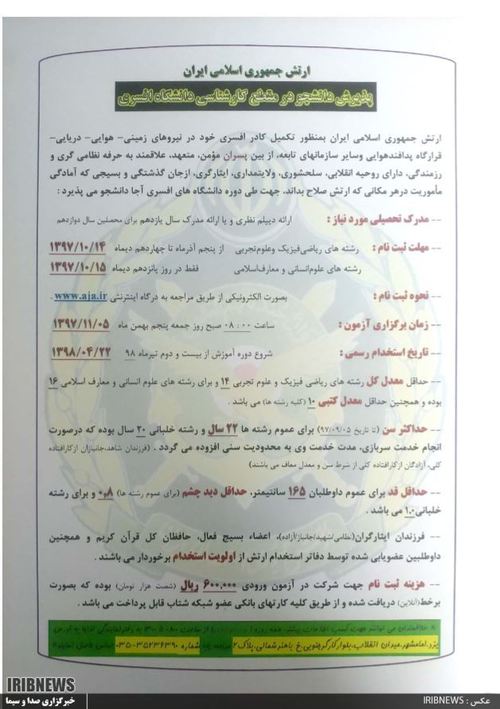 ارتش جمهوری اسلامی ایران
پذیرش دانشجو در مقطع کارشناسی دانشگاه افسری
ارتش جمهوری اسلامی ایران بمنظور تکمیل کادر افسری خود در نیروهای زمینی- هوایی- دریایی-
قرارگاه پدافندهوایی وسایر سازمانهای تابعه، از بین پسران مؤمن، متعهد، علاقمند به حرفه نظامی گری و
رزمندگی، دارای روحیه انقلابی، سلحشوری، ولایتمداری، ایثارگری، ازجان گذشتگی و بسیجی که آمادگی
مأموریت درهر مکانی که ارتش صلاح بداند، جهت طی دوره دانشگاه های افسری آجا دانشجو می پذیرد :
-- مدرک تحصیلی مورد نیاز : ارائه دیپلم نظری و یا ارائه مدرک سال یازدهم برای محصلین سال دوازدهم
-- مهلت ثبت نام : رشته های ریاضی فیزیک وعلوم تجربی از پنجم آذرماه تا چهاردهم دیماه ۱۳۹۷/۱۰/۱۴
رشته های علوم انسانی و معارف اسلامی فقط در روز پانزدهم دیماه ۱۳۹۷/۱۰/۱۵
-- نحوه ثبت نام : بصورت الکترونیکی از طریق مراجعه به درگاه اینترنتی www.aja.ir .
-- زمان برگزاری آزمون : ساعت ۰۸:۰۰ صبح روز جمعه پنجم بهمن ماه ۱۳۹۷/۱۱/۰۵
-- تاریخ استخدام رسمی : شروع دوره آموزش از بیست و دوم تیرماه ۹۸ ۱۳۹۸/۰۴/۲۲
-- حداقل معدل کل رشته های ریاضی فیزیک و علوم تجربی ۱۴ و برای رشته های علوم انسانی و معارف اسلامی ۱۶
بوده و همچنین حداقل معدل کتبی ۱۰ (کلیه رشته ها) می باشد .
-- حداکثر سن (تا تاریخ ۹۷/۰۹/۰۵) برای عموم رشته ها ۲۲ سال و رشته خلبانی ۲۰ سال بوده که درصورت
انجام خدمت سربازی، مدت خدمت وی به محدودیت سنی افزوده می گردد . (فرزندان شاهد،جانبازان ازکارافتاده
کلی، آزادگان ازکارافتاده کلی از شرط سن و معدل معاف می باشند)
-- حداقل قد برای عموم داوطلبان ۱۶۵ سانتیمتر، حداقل دید چشم (برای عموم رشته ها) ۰.۸ و برای رشته
خلبانی ۱.۰ می باشد .
-- فرزندان ایثارگران (نظامی/شهید/جانباز/آزاده)، اعضاء بسیج فعال، حافظان کل قرآن کریم و همچنین
داوطلبین عضویابی شده توسط دفاتر استخدام ارتش از اولویت استخدام برخوردار می باشند .
-- هزینه ثبت نام جهت شرکت در آزمون ورودی ۶۰۰,۰۰۰ ریال (شصت هزار تومان) بوده که بصورت
برخط(آنلاین) دریافت شده و از طریق کلیه کارتهای بانکی عضو شبکه شتاب قابل پرداخت می باشد .
یزد، امامشهر، میدان انقلاب، بلوار کارگر جنوبی، خ باهنر شمالی، پلاک ۲ شماره ۳۵۲۳۶۳۹۰-۰۳۵
IRIBNEWS
خبرگزاری صدا و سیما
عکس : IRIBNEWS